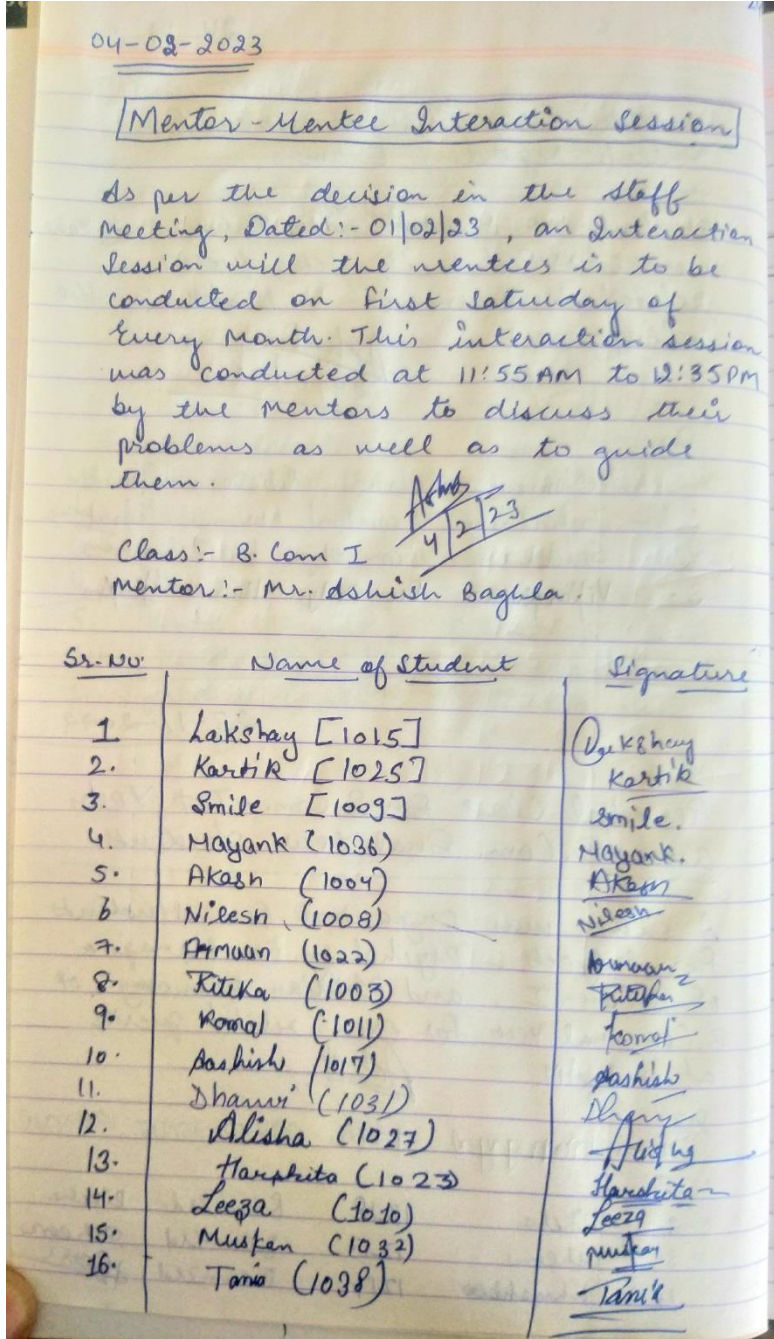 04-02-2023
Mentor-Mentee Interaction Session
As per the decision in the staff
Meeting, Dated:- 01/02/23, an Interaction
Session will the mentees is to be
conducted on first Saturday of
Every Month. This interaction session
was conducted at 11:55 AM to 12:35PM
by the Mentors to discuss their
problems as well as to guide
them.
4/2/23
Class:- B. Com I
Mentor:- Mr. Ashish Baghla.
Sr. No. Name of Student Signature
1 Lakshay [1015] Lakshay
2. Kartik [1025] Kartik
3. Smile [1009] Smile.
4. Mayank (1036) Mayank.
5. Akash (1004) Akash
6 Nilesh (1008) Nilesh
7. Armaan (1022) Armaan
8. Ritika (1003) Ritika
9. Komal (1011) Komal
10. Aashish (1017) Aashish
11. Dhanvi (1031)
12. Alisha (1027) Alisha
13. Harshita (1023) Harshita
14. Leeza (1010) Leeza
15. Muskan (1032) Muskan
16. Tania (1038) Tania